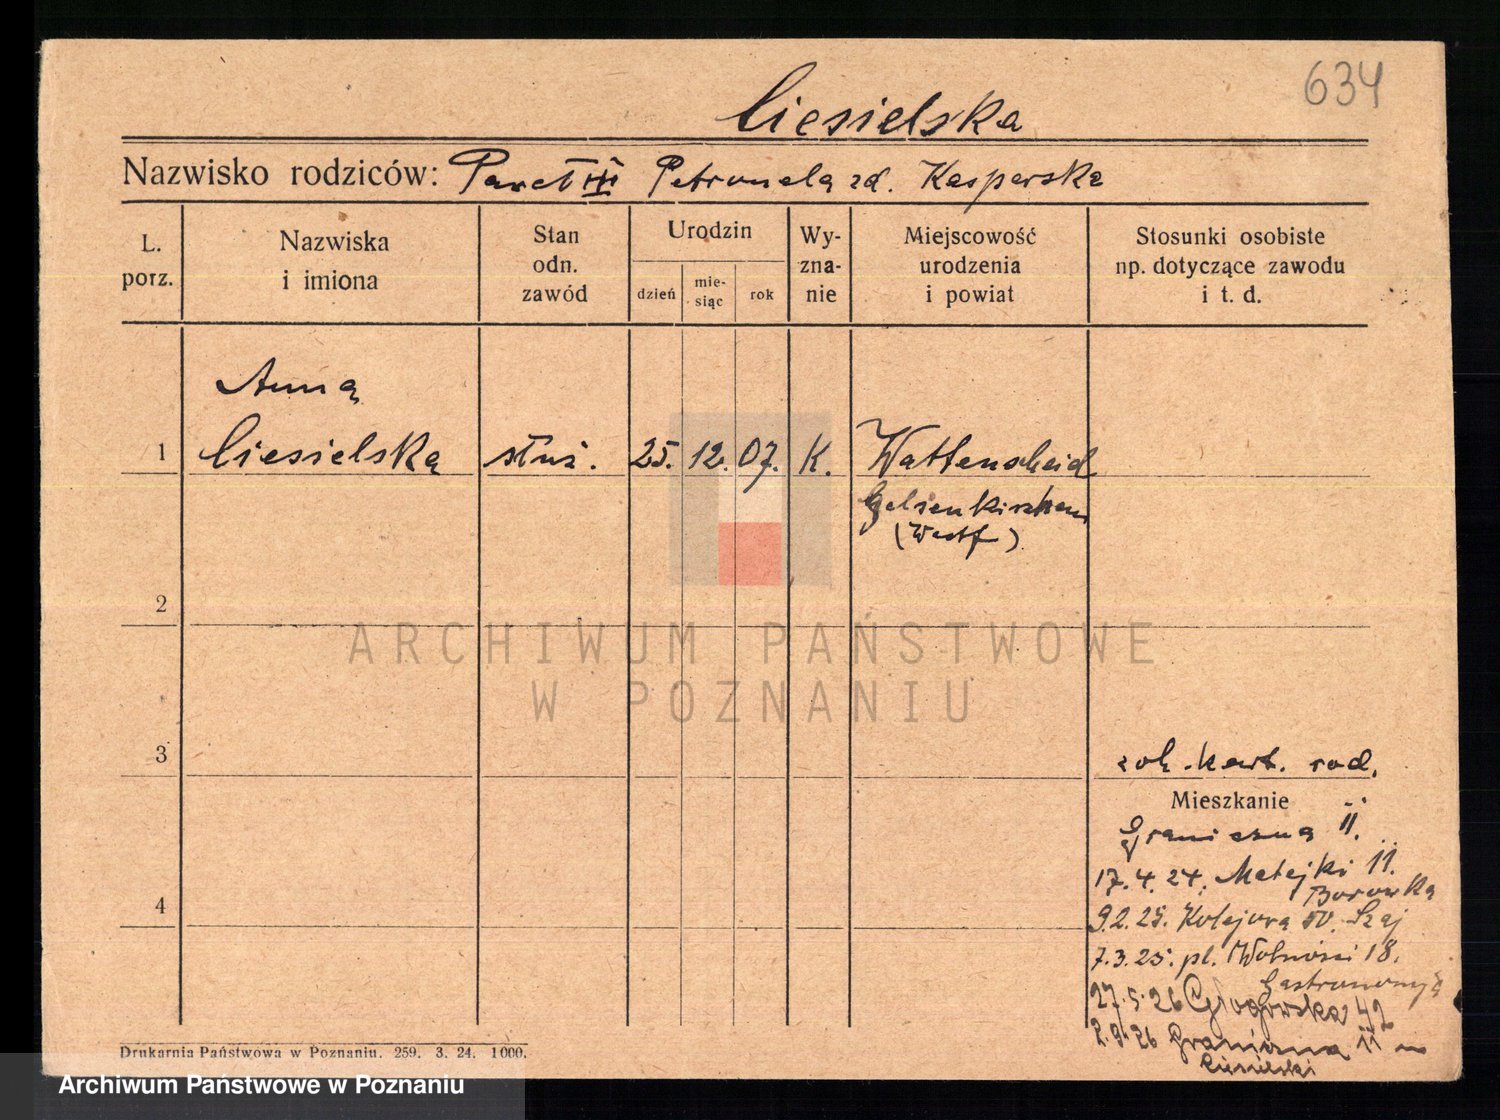 634
Ciesielska
Nazwisko rodziców: Paweł III Petronela zd. Kasperska
L. porz.
Nazwiska i imiona
Stan odn. zawód
Urodzin
dzień
mie- siąc
rok
Wy- zna- nie
Miejscowość urodzenia i powiat
Stosunki osobiste np. dotyczące zawodu i t. d.
Anna
1 Ciesielska służ. 25. 12. 07. K. Wattenscheid
Gelsenkirchen
(Westf)
2
ARCHIWUM PAŃSTWOWE
W POZNANIU
3
zob. kart. rod.
Mieszkanie
Graniczna 11.
17.4.24. Matejki 11.
Borowka
4
9.2.25. Kolejowa 50. Szaj
7.3.25. pl. Wolności 18.
Gastronomja
27.5.26 Głogowska 42
2.9.26 Graniczna 11
Ciesielski
Drukarnia Państwowa w Poznaniu. 259. 3. 24. 1000.
Archiwum Państwowe w Poznaniu